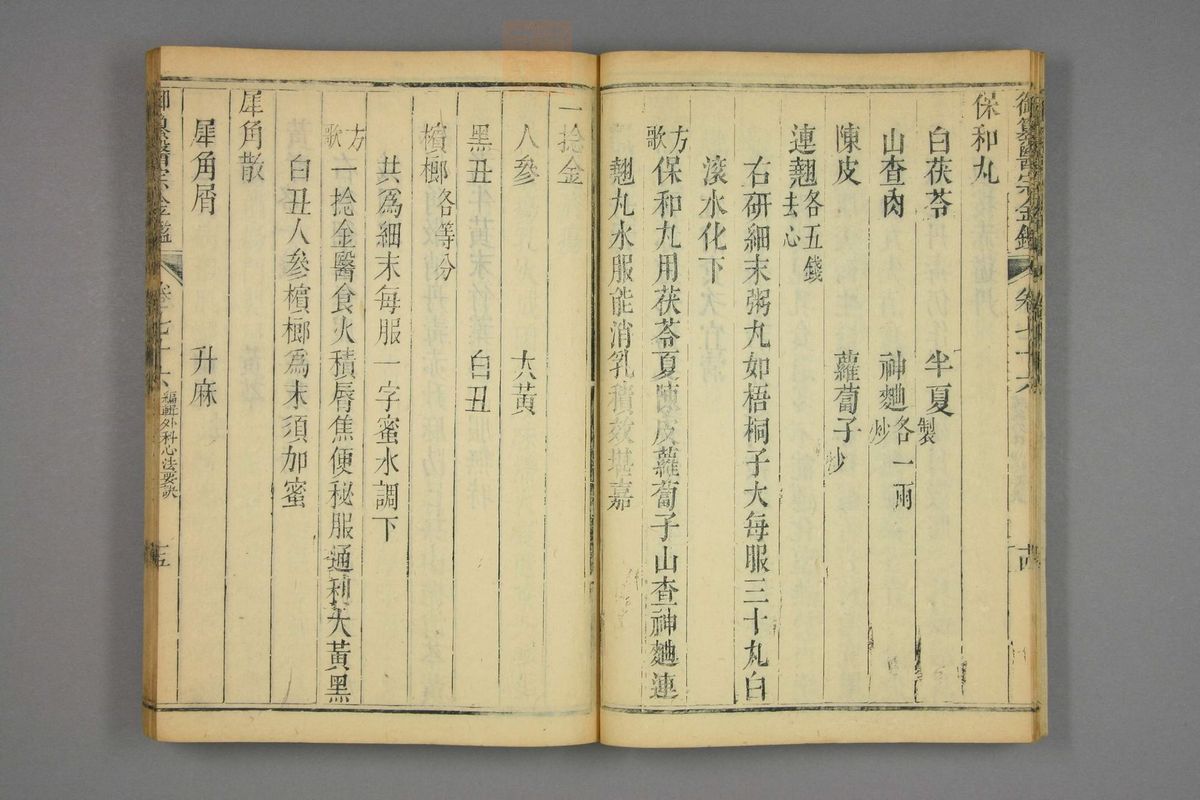 御纂醫宗金鑑 卷七十六 十四
保和丸
白茯苓 半夏製
山查肉 神麯炒各一兩
陳皮 蘿蔔子炒
連翹去心各五錢
右研細末粥丸如梧桐子大每服三十丸白
滾水化下
方歌 保和丸用茯苓夏陳皮蘿蔔子山查神麯連
翹丸水服能消乳積效堪嘉
一捻金
人參 大黃
黑丑 白丑
檳榔各等分
共爲細末每服一字蜜水調下
方歌 一捻金醫食火積脣焦便秘服通利大黃黑
白丑人參檳榔爲末須加蜜
犀角散
犀角屑 升麻
御纂醫宗金鑑 卷七十六 編輯外科心法要訣 十五